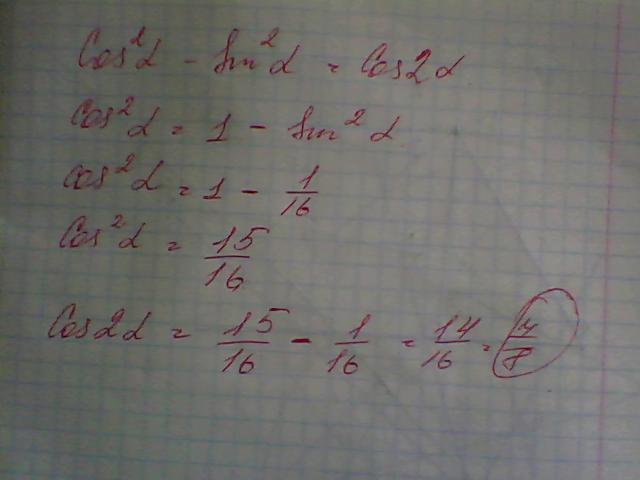 Cos²α - Sin²α = Cos2α
Cos²α = 1 - Sin²α
Cos²α = 1 - 1/16
Cos²α = 15/16
Cos2α = 15/16 - 1/16 = 14/16 = 7/8